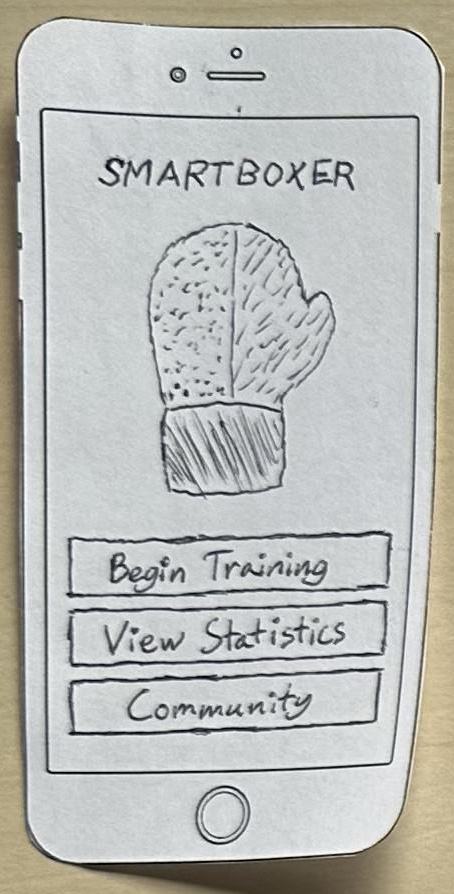 SMARTBOXER
Begin Training
View Statistics
Community